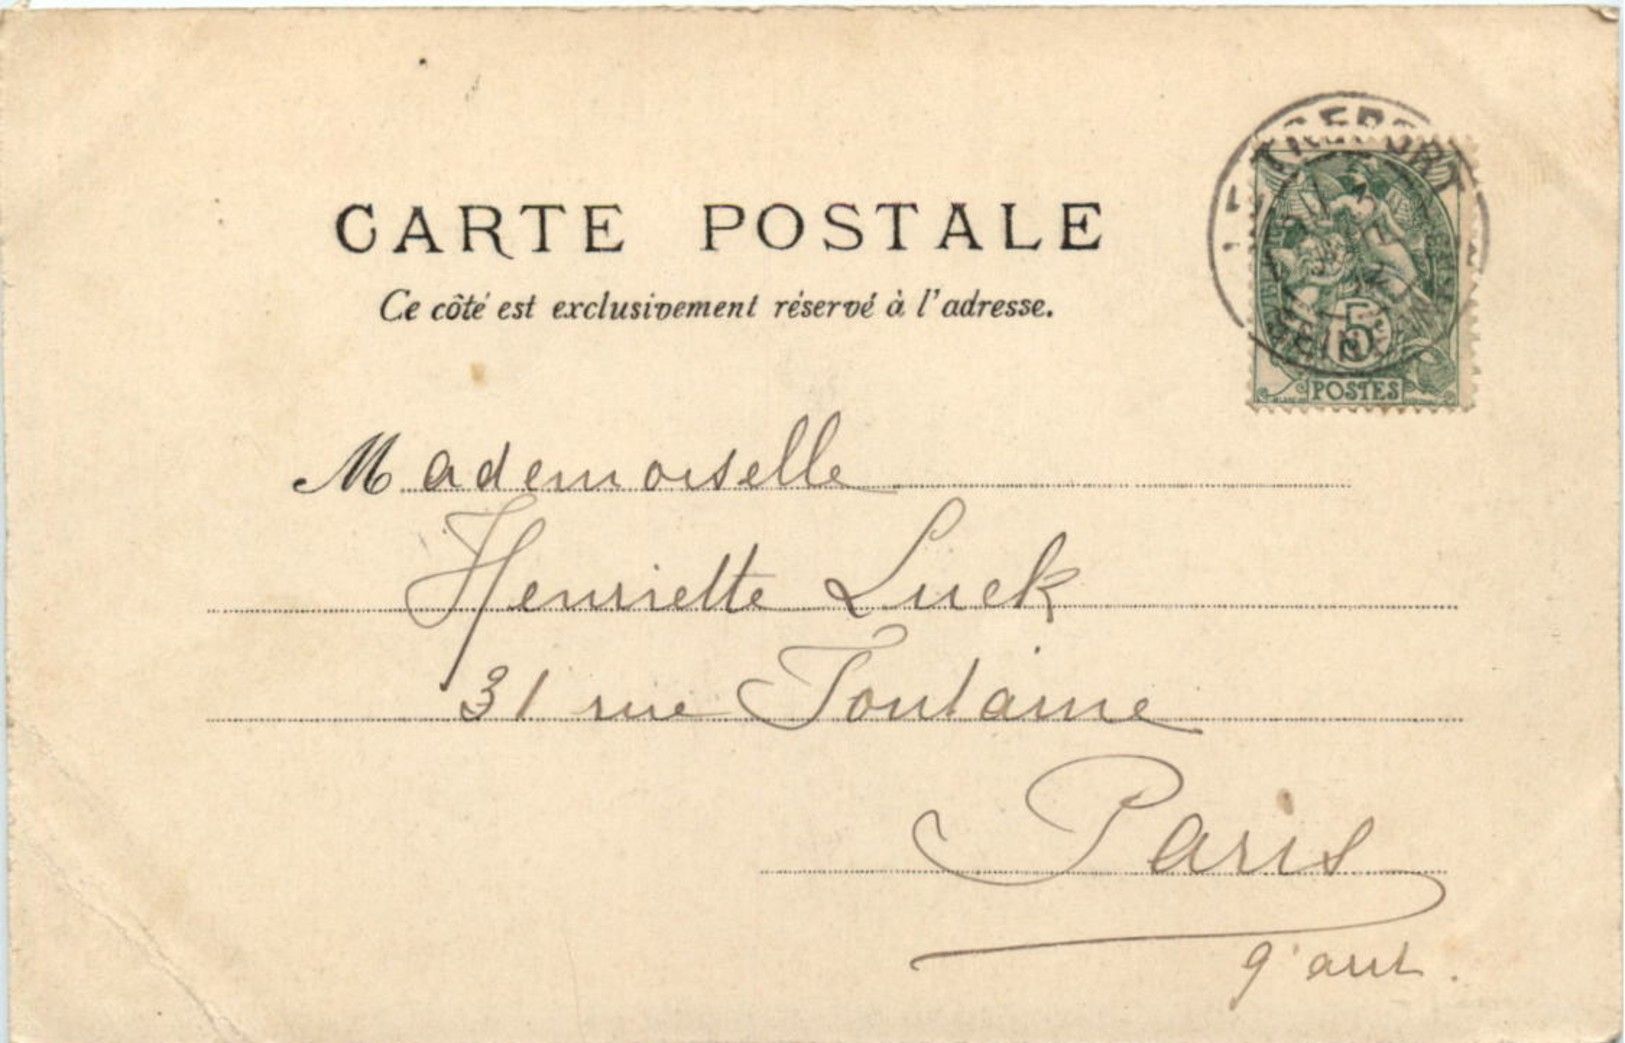 CARTE POSTALE
Ce côté est exclusivement réservé à l'adresse.
LE TREPORT
SEINE INF
5
POSTES
Mademoiselle
Henriette Luck
31 rue Fontaine
Paris
9e arrt.